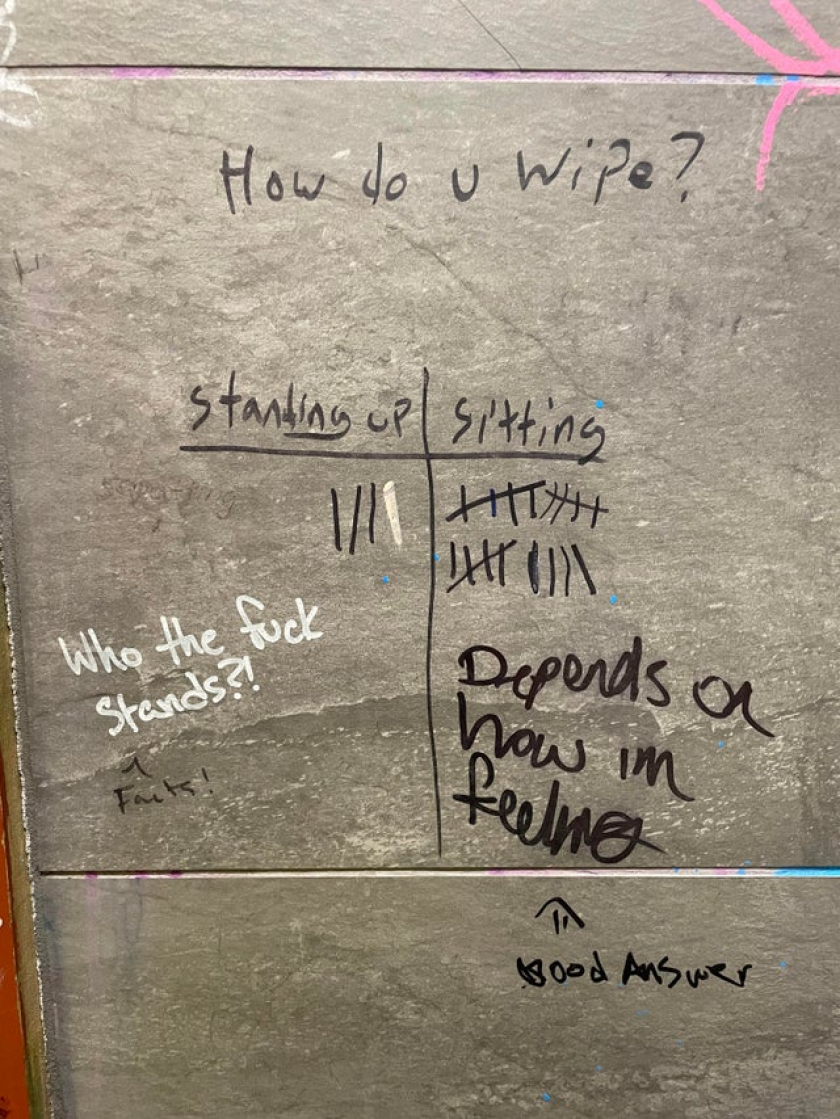 How do u wipe?
standing up
sitting
Who the fuck
stands?!
Facts!
Depends on
how im
feeling
Good Answer